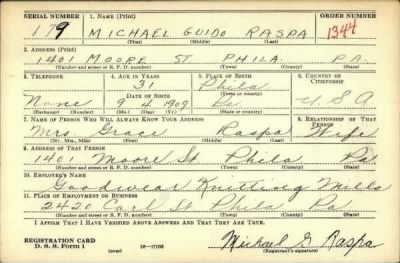 SERIAL NUMBER 1. NAME (Print) ORDER NUMBER
179 MICHAEL GUIDO RASPA 1344
(First) (Middle) (Last)
2. ADDRESS (Print)
1401 MOORE ST. PHILA PA.
(Number and street or R. F. D. number) (Town) (County) (State)
3. TELEPHONE 4. AGE IN YEARS 5. PLACE OF BIRTH 6. COUNTRY OF CITIZENSHIP
31 Phila
DATE OF BIRTH (Town or county)
None 9 4 1909 Pa U.S.A
(Exchange) (Number) (Mo.) (Day) (Yr.) (State or country)
7. NAME OF PERSON WHO WILL ALWAYS KNOW YOUR ADDRESS 8. RELATIONSHIP OF THAT PERSON
Mrs. Grace Raspa Wife
(Mr., Mrs., Miss) (First) (Middle) (Last)
9. ADDRESS OF THAT PERSON
1401 Moore St Phila Pa
(Number and street or R. F. D. number) (Town) (County) (State)
10. EMPLOYER'S NAME
Goodwear Knitting Mills
11. PLACE OF EMPLOYMENT OR BUSINESS
2420 St Phila Pa
(Number and street or R. F. D. number) (Town) (County) (State)
I AFFIRM THAT I HAVE VERIFIED ABOVE ANSWERS AND THAT THEY ARE TRUE.
REGISTRATION CARD
D. S. S. Form 1 (over) Michael G Raspa
(Registrant's signature)